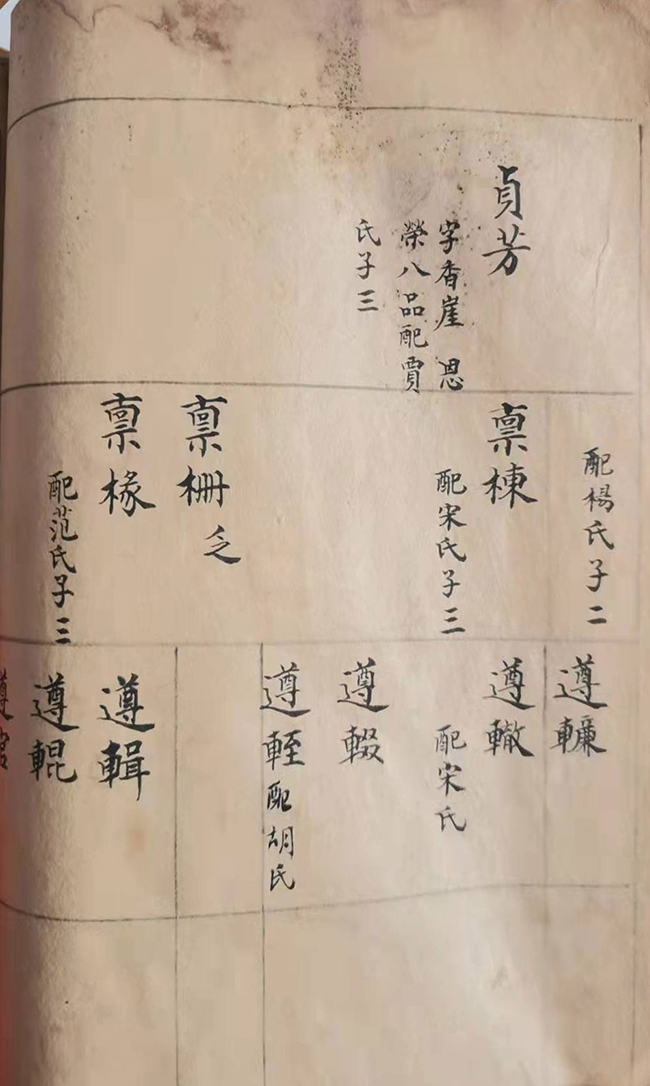 貞芳
字香崖 恩
榮八品配賈
氏子三
配楊氏子二
禀棟
配宋氏子三
禀柵
乏
禀椽
配范氏子三
遵轍
配宋氏
遵輟
遵輊
配胡氏
遵輯
遵輥